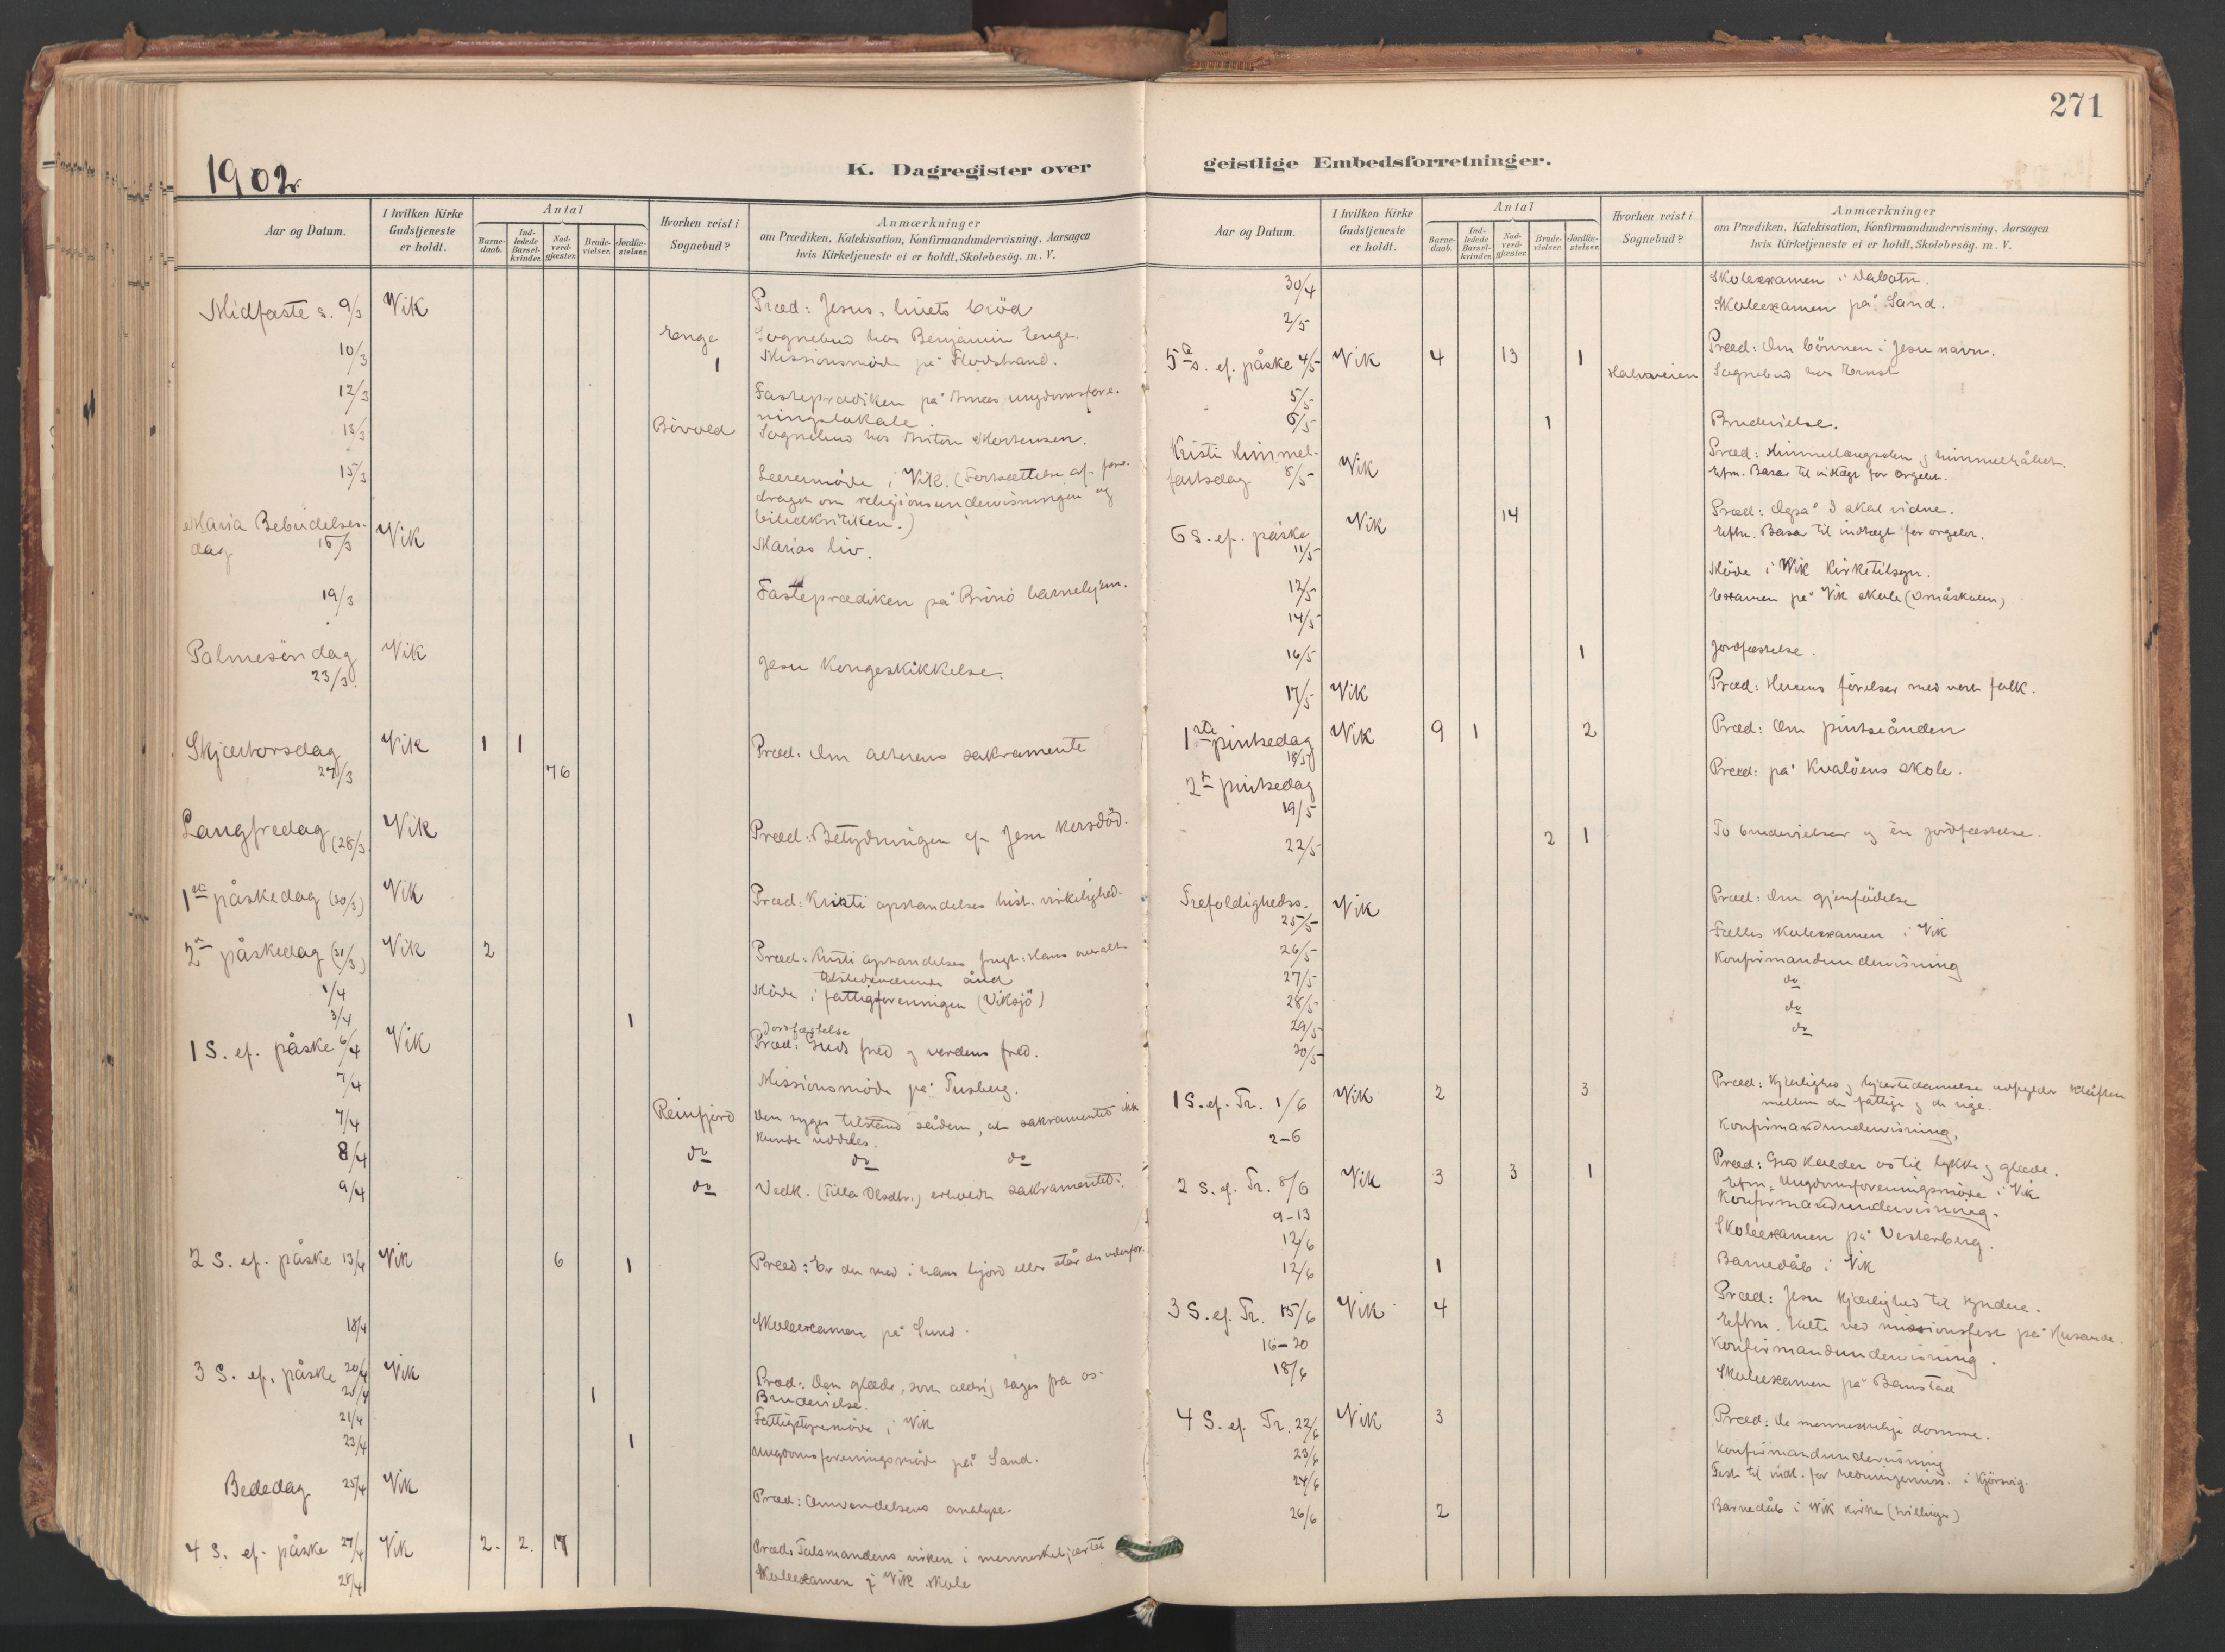 271
1902.
K. Dagregister over
geistlige Embedsforretninger.
Aar og Datum.
I hvilken Kirke Gudstjeneste er holdt.
Antal
Barne-daab.
Ind-ledede Barsel-kvinder.
Nad-verd-gjæster.
Brude-vielser.
Jordfæ-stelser.
Hvorhen reist i Sognebud?
Anmærkninger
om Prædiken, Katekisation, Konfirmandundervisning, Aarsagen
hvis Kirketjeneste ei er holdt, Skolebesög. m. V.
Midfaste s. 9/3 Vik Præd: Jesus, livets bröd
10/3 Enge Sognebud hos Benjamin Enge.
1 Missionsmöde på Flodstrand.
12/3 Fasteprædiken på ungdomsfore-
ningslokale.
13/3 Bövold Sognebud hos Anton Mortensen.
15/3 Lærermöde i Vik. (Fortsættelse af fore-
draget om religionsundervisningen og
bibelkritikken.)
Maria Bebudelses-
dag 16/3 Vik Marias liv.
19/3 Fasteprædiken på Brinö barnehjem.
Palmesöndag Vik
23/3. Jesu Kongeskikkelse.
Skjærtorsdag Vik 1 1
27/3 76 Præd: Om alterens sakramente
Langfredag (28/3 Vik Præd: Betydningen af Jesu korsdöd.
1ste påskedag (30/3) Vik Præd: Kristi opstandelses hist. virkelighed.
2n påskedag (31/3) Vik 2 Præd: Kristi opstandelses frugt: Hans overalt
tilstedeværende ånd
1/4 Möde i fattigforeningen (Viksjö)
3/4 1 Jordfæstelse
1 S. ef. påske 6/4 Vik Præd: Guds fred og verdens fred.
7/4 Missionsmöde på Tusberg.
7/4 Reinfjord Den syges tilstand sådan, at sakramentet ikke
kunde uddeles.
8/4 do do do
9/4 do Vedk. (Tilla Olsdtr.) erholdt sakramentet.
2 S. ef. påske 13/4 Vik 6 1 Præd: Er du med i hans hjord eller står du udenfor.
18/4 Skoleexamen på Sund.
3 S. ef. påske 20/4 Vik Præd: Den glæde, som aldrig tages fra os.
20/4 1 Brudevielse.
21/4 Fattigstyremöde i Vik
23/4 1 Ungdomsforeningsmöde på Sand.
Bededag 25/4 Vik Præd: Omvendelsens analyse.
4 S. ef. påske 27/4 Vik 2. 2. 17 Præd: Talsmandens virken i menneskehjertet
28/4 Skoleexamen i Vik skole
Aar og Datum.
I hvilken Kirke Gudstjeneste er holdt.
Antal
Barne-daab.
Ind-ledede Barsel-kvinder.
Nad-verd-gjæster.
Brude-vielser.
Jordfæ-stelser.
Hvorhen reist i Sognebud?
Anmærkninger
om Prædiken, Katekisation, Konfirmandundervisning, Aarsagen
hvis Kirketjeneste ei er holdt, Skolebesög. m. V.
30/4 Skoleexamen i
2/5 Skoleexamen på Sand.
5te s. ef. påske 4/5 Vik 4 13 1 Præd: Om bönnen i Jesu navn.
5/5 Halvveien Sognebud hos Ernst
6/5 1 Brudevielse.
Kristi Himmel-
fartsdag 8/5 Vik Præd: Himmellængselen og himmelhåbet.
Eftm. Basar til indtægt for orgelet.
6 S. ef. påske 11/5 Vik 14 Præd: Også I skal vidne.
Eftm. Basar til indtægt for orgelet.
12/5 Möde i Vik Kirketilsyn.
14/5 Examen på Vik skole (småskolen)
16/5 1 Jordfæstelse.
17/5 Vik Præd: Herrens förelser med vort folk.
1ste pintsedag Vik 9 1 2 Præd: Om pintseånden
18/5
2n pintsedag Præd: på Kvalöens skole.
19/5
22/5 2 1 To brudevielser og én jordfæstelse.
Trefoldighedss. Vik Præd: Om gjenfödelse
25/5
26/5 Fælles skoleexamen i Vik
27/5 Konfirmandundervisning
28/5 do
29/5 do
30/5 do
1 S. ef. Tr. 1/6 Vik 2 3 Præd: Kjærlighed og hjertedannelse udfylder klöften
mellem de fattige og de rige.
2-6 Konfirmandundervisning.
2 S. ef. Tr. 8/6 Vik 3 3 1 Præd: Gud kalder os til lykke og glæde.
Eftm. Ungdomsforeningsmöde i Vik
9-13 Konfirmandundervisning.
12/6 Skoleexamen på Vesterberg.
12/6 1 Barnedåb i Vik
3 S. ef. Tr. 15/6 Vik 4 Præd: Jesu kjærlighed til syndere.
Eftm. talte ved missionsfest på Husande.
16-20 Konfirmandundervisning.
18/6 Skoleexamen på Baustad
4 S. ef. Tr. 22/6 Vik 3 Præd: De menneskelige domme.
23/6 Konfirmandundervisning
24/6 Fest til indt. for hedningemiss. i Kjörsvig.
26/6 2 Barnedåb i Vik kirke (tvillinger)